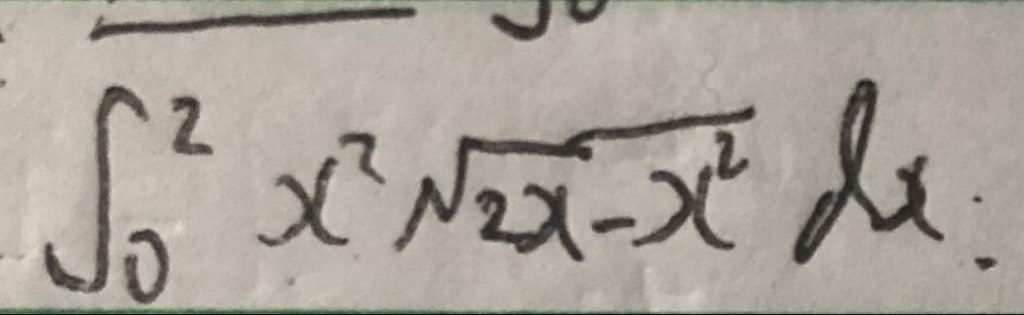 ∫₀² x² √(2x-x²) dx.